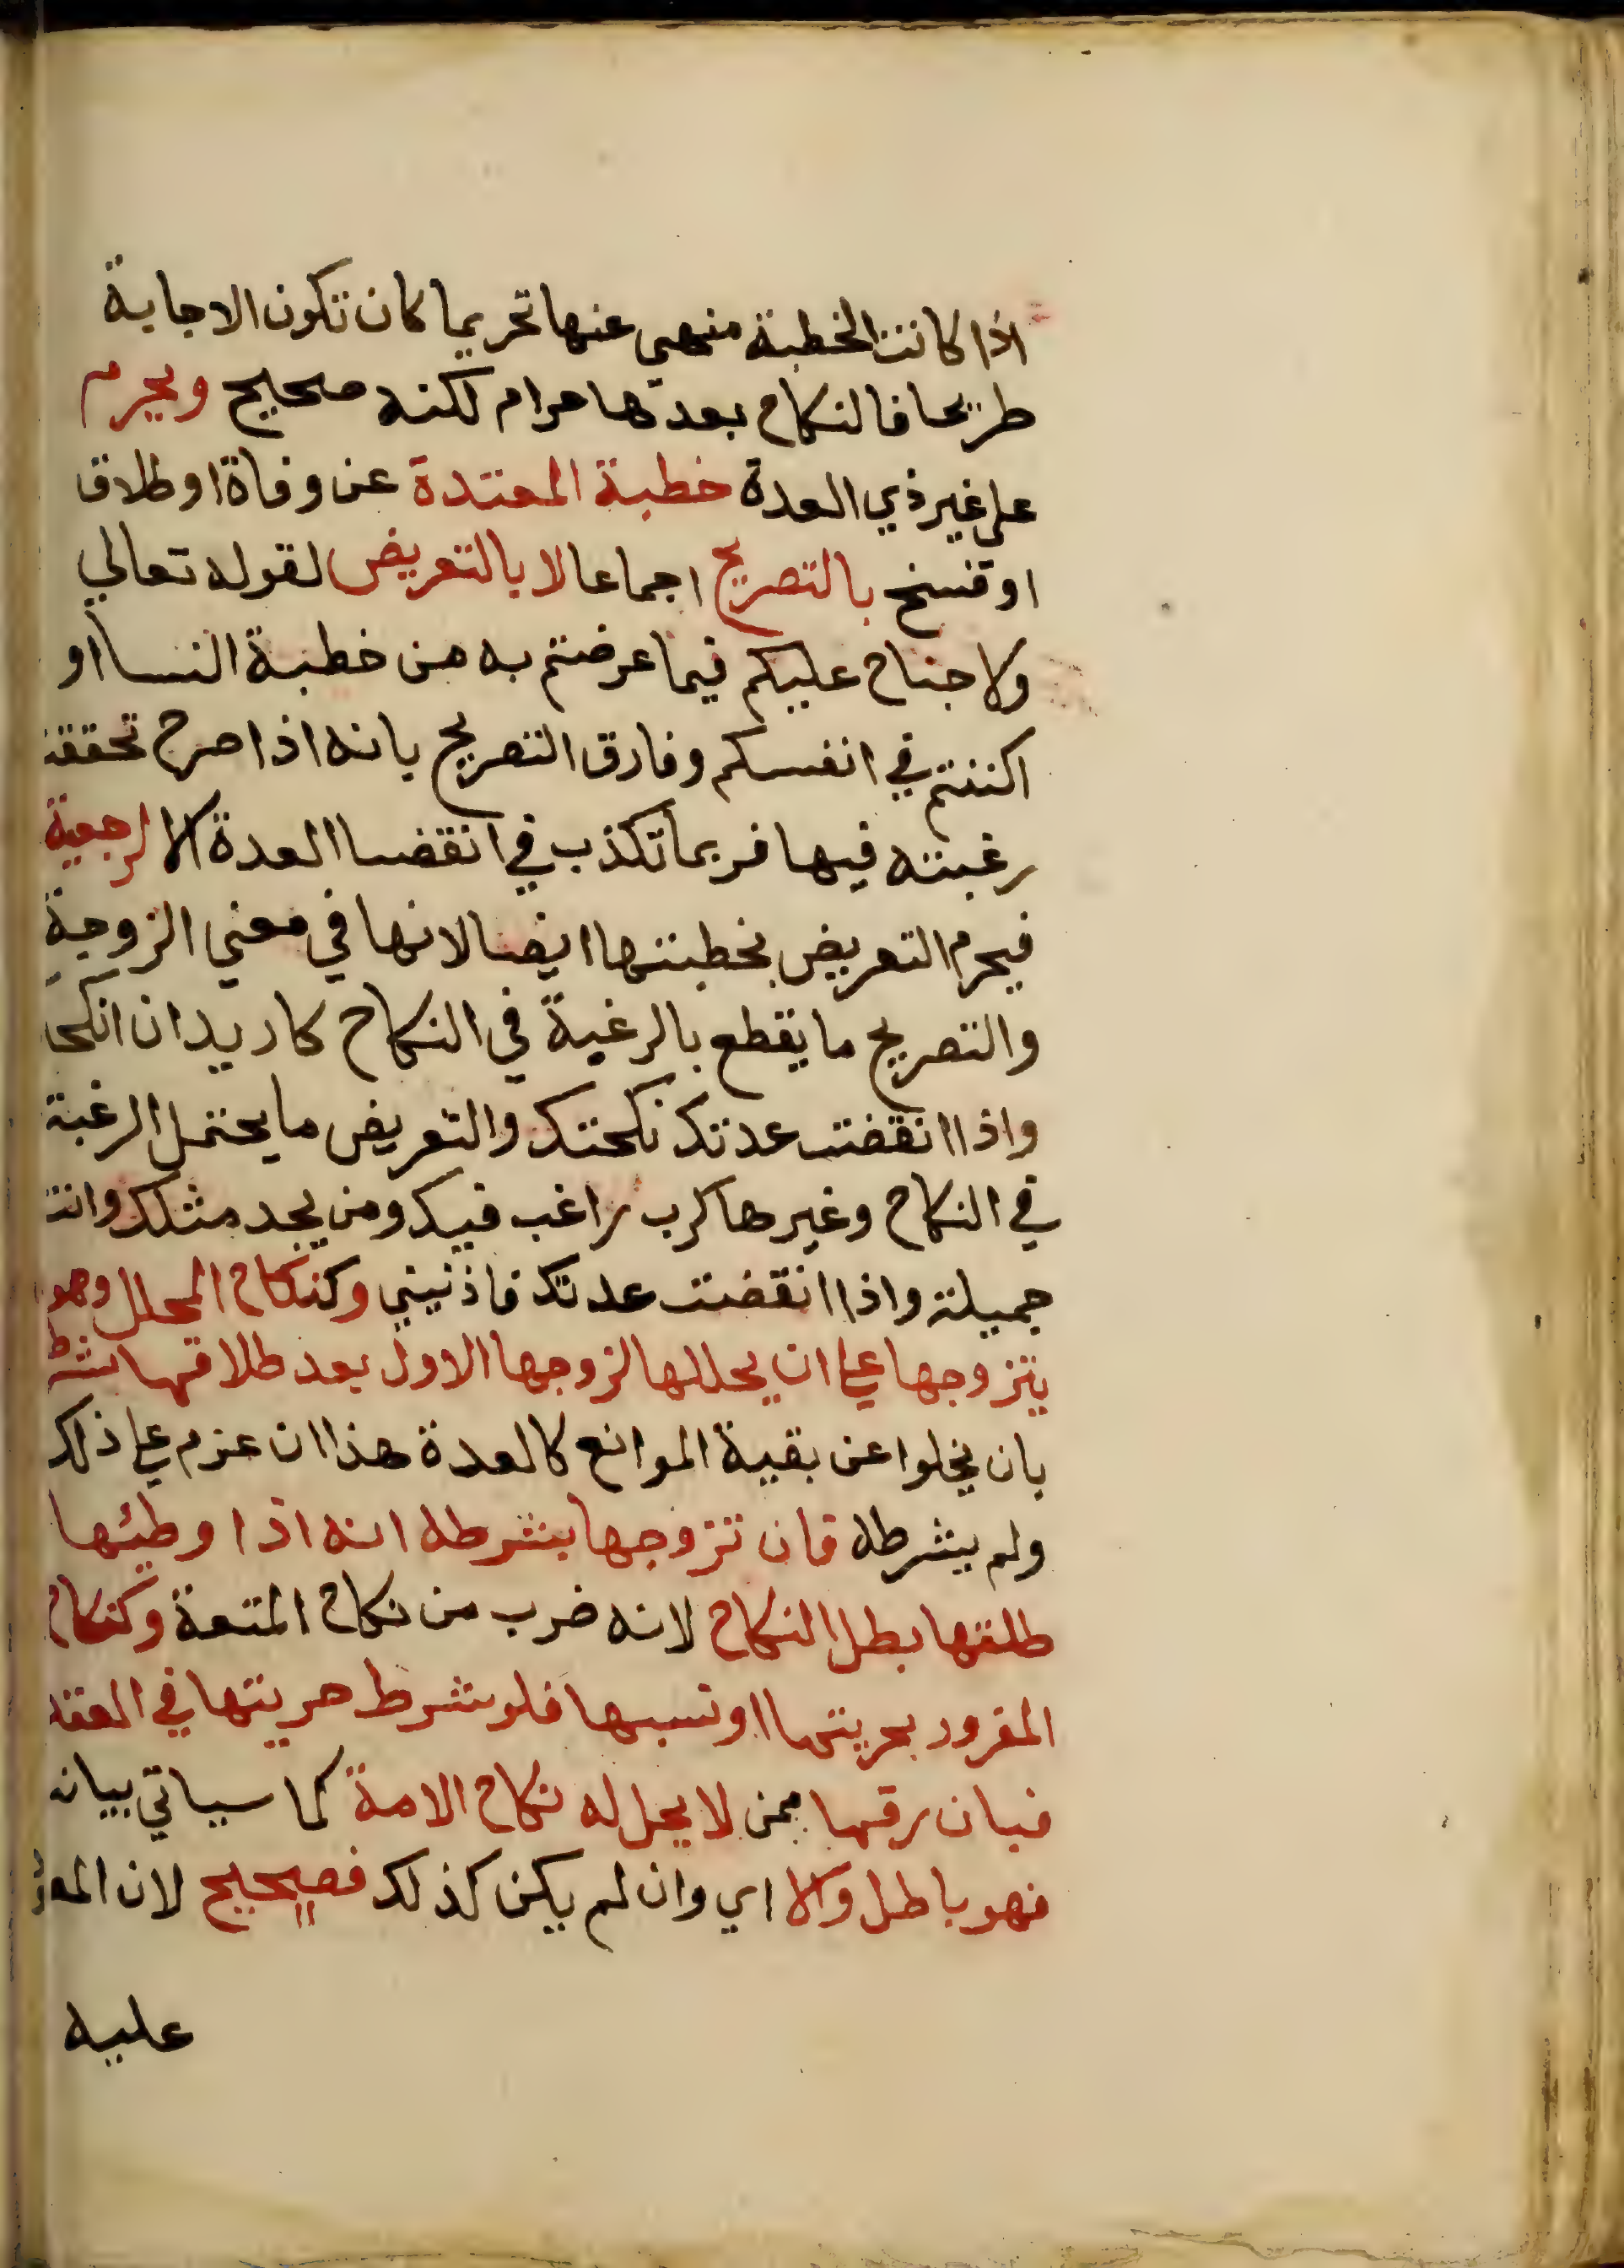 اذا كانت الخطبة منهي عنها تحريما كان تكون الاجابة
طريحا فالنكاح بعدها حرام لكنه صحيح ويحرم
على غير ذي العدة خطبة المعتدة عن وفاة او طلاق
او فسخ بالتصريح اجماعا لا بالتعريض لقوله تعالي
ولا جناح عليكم فيما عرضتم به من خطبة النسا او
اكننتم في انفسكم وفارق التصريح بانه اذا صرح تحققت
رغبته فيها فربما تكذب في انقضا العدة الا الرجعية
فيحرم التعريض بخطبتها ايضا لانها في معني الزوجة
والتصريح ما يقطع بالرغبة في النكاح كاريد ان انكحك
واذا انقضت عدتك نكحتك والتعريض ما يحتمل الرغبة
في النكاح وغيرها كرب راغب فيك ومن يجد مثلك وانت
جميلة واذا انقضت عدتك فاذنيني وكنكاح المحلل وهو
يتزوجها علي ان يحللها لزوجها الاول بعد طلاقها بشرطه
بان يخلوا عن بقية الموانع كالعدة هذا ان عزم علي ذلك
ولم يشرطه فان تزوجها بشرطه انه اذا وطئها
طلقها بطل النكاح لانه ضرب من نكاح المتعة وكنكاح
المغرور بحريتها او نسبها فلو شرط حريتها في العقد
فبان رقها ممن لا يحل له نكاح الامة كما سياتي بيانه
فهو باطل والا اي وان لم يكن كذلك فصحيح لان المعقود
عليه